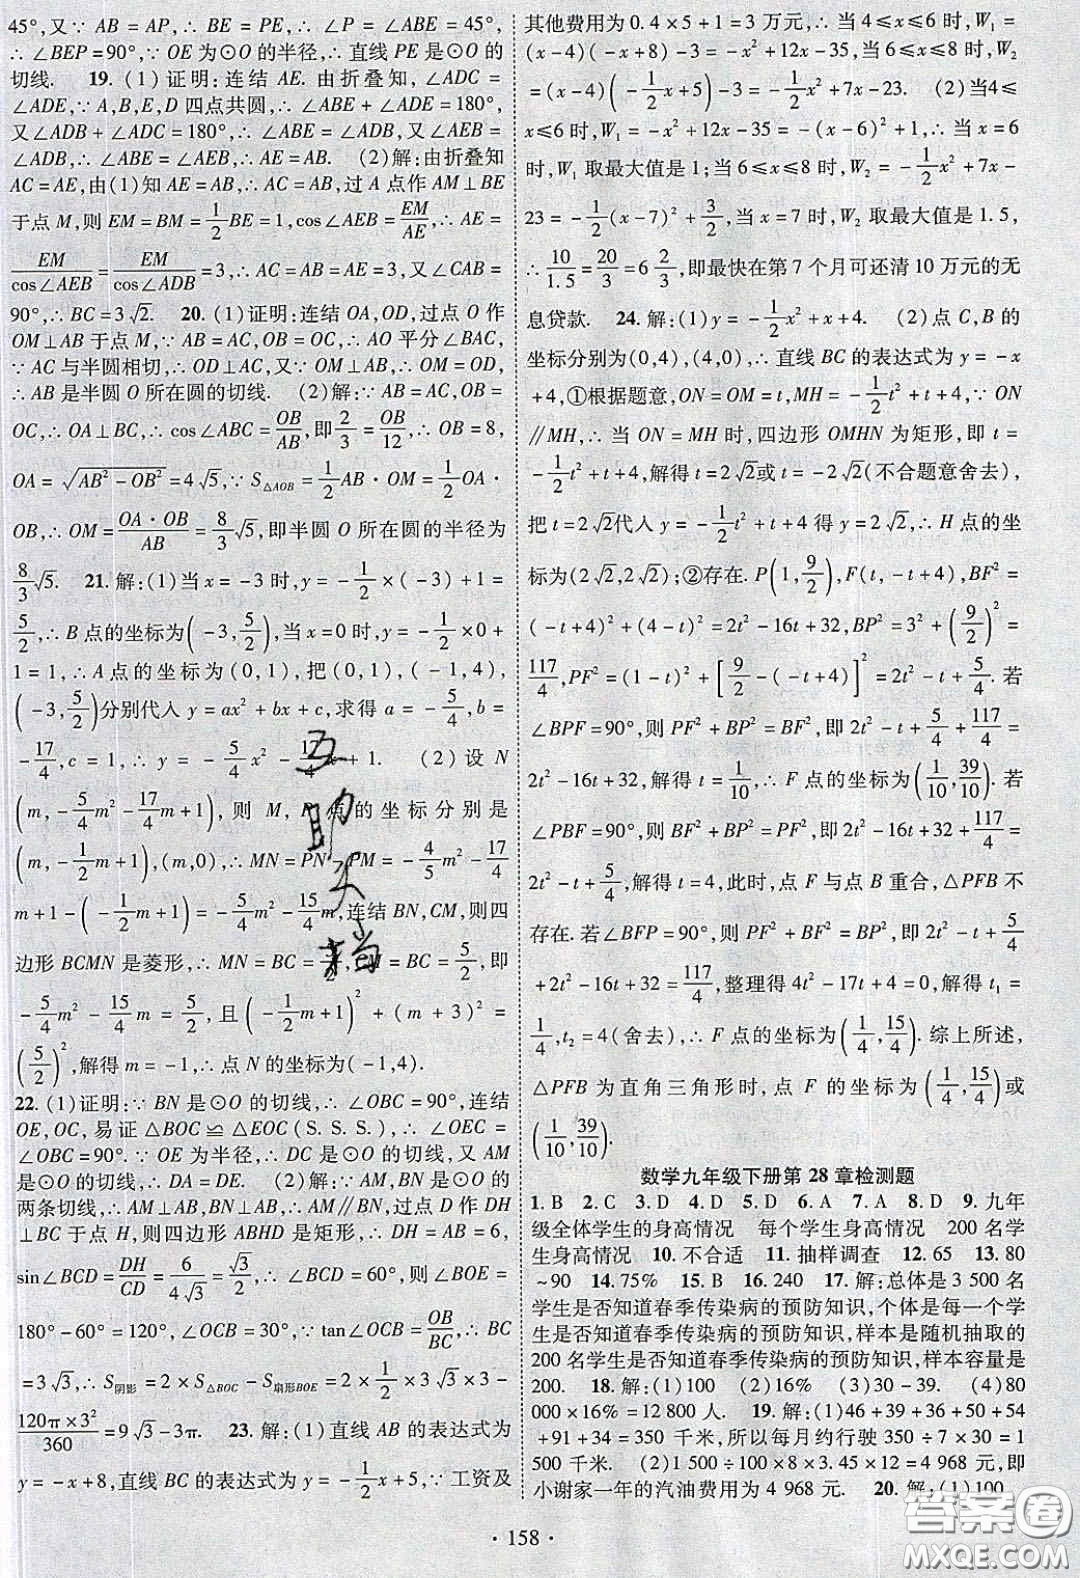 45°,又∵ AB = AP,∴ BE = PE,∴ ∠P = ∠ABE = 45°,
∴ ∠BEP = 90°,∵ OE 为⊙O 的半径,∴ 直线 PE 是⊙O 的
切线. 19. (1) 证明:连结 AE. 由折叠知, ∠ADC =
∠ADE,∵ A,B,E,D 四点共圆,∴ ∠ABE + ∠ADE = 180°,
又∠ADB + ∠ADC = 180°,∴ ∠ABE = ∠ADB,又∠AEB =
∠ADB,∴ ∠ABE = ∠AEB,∴ AE = AB. (2)解:由折叠知
AC = AE,由(1)知 AE = AB,∴ AC = AB,过 A 点作 AM⊥BE
于点 M,则 EM = BM = 1/2 BE = 1,cos∠AEB = EM/AE,∴ AE =
EM/cos∠AEB = EM/cos∠ADB = 3,∴ AC = AB = AE = 3,又∠CAB =
90°,∴ BC = 3√2. 20. (1)证明:连结 OA,OD,过点 O 作
OM⊥AB 于点 M,∵ AB = AC,OB = OC,∴ AO 平分∠BAC,
∵ AC 与半圆相切,∴ OD⊥AC,又∵ OM⊥AB,∴ OM = OD,
∴ AB 是半圆 O 所在圆的切线. (2)解:∵ AB = AC,OB =
OC,∴ OA⊥BC,∴ cos∠ABC = OB/AB,即 2/3 = OB/12,∴ OB = 8,
OA = √(AB² - OB²) = 4√5,∵ S△AOB = 1/2 AB · OM = 1/2 OA ·
OB,∴ OM = (OA · OB)/AB = 8/3 √5,即半圆 O 所在圆的半径为
8/3 √5. 21. 解:(1)当 x = -3 时,y = -1/2 × (-3) + 1 =
5/2,∴ B 点的坐标为(-3, 5/2),当 x = 0 时,y = -1/2 × 0 +
1 = 1,∴ A 点的坐标为(0,1),把(0,1),(-1,4),
(-3, 5/2)分别代入 y = ax² + bx + c,求得 a = -5/4,b =
-17/4,c = 1,∴ y = -5/4 x² - 17/4 x + 1. (2) 设 N
(m, -5/4 m² - 17/4 m + 1), 则 M, 点的坐标分别是
(m, -1/2 m + 1),(m,0),∴ MN = PN - PM = -4/5 m² - 17/4
m + 1 - (-1/2 m + 1) = -5/4 m² - 15/4 m,连结 BN,CM,则四
边形 BCMN 是菱形,∴ MN = BC = 5/2, = BC = 5/2,即
-5/4 m² - 15/4 m = 5/2, 且 (-1/2 m + 1)² + (m + 3)² =
(5/2)²,解得 m = -1,∴ 点 N 的坐标为(-1,4).
22. (1)证明:∵ BN 是⊙O 的切线,∴ ∠OBC = 90°,连结
OE,OC,易证 △BOC ≌ △EOC (S. S. S.),∴ ∠OEC =
∠OBC = 90°. ∵ OE 为半径,∴ DC 是⊙O 的切线,又 AM
是⊙O 的切线,∴ DA = DE. (2)解:∵ AM,BN 是⊙O 的
两条切线,∴ AM⊥AB,BN⊥AB,∴ AM∥BN,过点 D 作 DH
⊥BC 于点 H,则四边形 ABHD 是矩形,∴ DH = AB = 6,
sin∠BCD = DH/CD = 6/(4√3) = √3/2,∴ ∠BCD = 60°,则∠BOE =
180° - 60° = 120°,∠OCB = 30°,∵ tan∠OCB = OB/BC,∴ BC
= 3√3,∴ S阴影 = 2 × S△BOC - S扇形BOE = 2 × 1/2 × 3√3 × 3 -
(120π × 3²)/360 = 9√3 - 3π. 23. 解:(1)直线 AB 的表达式为
y = -x + 8,直线 BC 的表达式为 y = -1/2 x + 5,∵ 工资及
其他费用为 0.4 × 5 + 1 = 3 万元,∴ 当 4≤x≤6 时,W₁
= (x - 4)(-x + 8) - 3 = -x² + 12x - 35,当 6≤x≤8 时,W₂
= (x - 4)(-1/2 x + 5) - 3 = -1/2 x² + 7x - 23. (2)当 4≤
x≤6 时,W₁ = -x² + 12x - 35 = -(x - 6)² + 1,∴ 当 x = 6
时,W₁ 取最大值是 1;当 6≤x≤8 时,W₂ = -1/2 x² + 7x -
23 = -1/2 (x - 7)² + 3/2,当 x = 7 时,W₂ 取最大值是 1.5,
∴ 10/1.5 = 20/3 = 6 2/3,即最快在第 7 个月可还清 10 万元的无
息贷款. 24. 解:(1) y = -1/2 x² + x + 4. (2)点 C,B 的
坐标分别为(0,4),(4,0),∴ 直线 BC 的表达式为 y = -x
+ 4,①根据题意,ON = OM = t,MH = -1/2 t² + t + 4,∵ ON
∥MH,∴ 当 ON = MH 时,四边形 OMHN 为矩形,即 t =
-1/2 t² + t + 4,解得 t = 2√2或 t = -2√2(不合题意舍去),
把 t = 2√2代入 y = -1/2 t² + t + 4 得 y = 2√2,∴ H 点的坐
标为(2√2,2√2);②存在. P(1, 9/2),F(t, -t + 4),BF² =
(-t + 4)² + (4 - t)² = 2t² - 16t + 32,BP² = 3² + (9/2)² =
117/4,PF² = (1 - t)² + [9/2 - (-t + 4)]² = 2t² - t + 5/4. 若
∠BPF = 90°,则 PF² + BP² = BF²,即 2t² - t + 5/4 + 117/4 =
2t² - 16t + 32,解得 t = 1/10,∴ F 点的坐标为(1/10, 39/10). 若
∠PBF = 90°,则 BF² + BP² = PF²,即 2t² - 16t + 32 + 117/4 =
2t² - t + 5/4,解得 t = 4,此时,点 F 与点 B 重合,△PFB 不
存在. 若∠BFP = 90°,则 PF² + BF² = BP²,即 2t² - t + 5/4
+ 2t² - 16t + 32 = 117/4,整理得 4t² - 17t + 4 = 0,解得 t₁ =
1/4,t₂ = 4(舍去),∴ F 点的坐标为(1/4, 15/4). 综上所述,
△PFB 为直角三角形时,点 F 的坐标为(1/4, 15/4)或
(1/10, 39/10).
数学九年级下册第 28 章检测题
1. B 2. C 3. D 4. D 5. D 6. A 7. A 8. D 9. 九年
级全体学生的身高情况 每个学生身高情况 200 名学
生身高情况 10. 不合适 11. 抽样调查 12. 65 13. 80
~90 14. 75% 15. B 16. 240 17. 解:总体是 3 500 名
学生是否知道春季传染病的预防知识,个体是每一个学
生是否知道春季传染病的预防知识,样本是随机抽取的
200 名学生是否知道春季传染病的预防知识,样本容量是
200. 18. 解:(1)100 (2)16% (3)30 - 39. (4)80
000 × 16% = 12 800 人. 19. 解:(1)46 + 39 + 36 + 50 + 54
+ 91 + 34 = 350 千米,所以每月约行驶 350 ÷ 7 × 30 = 1
500 千米. (2)1 500 ÷ 100 × 8 × 3.45 × 12 = 4 968 元,即
小谢家一年的汽油费用为 4 968 元. 20. 解:(1)100
· 158 ·
答案圈
MXQE.COM